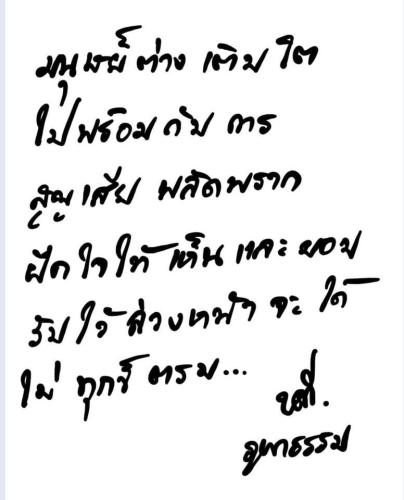 มนุษย์ ต่าง เติบ โต
ไปพร้อม กับ การ
สูญเสีย พลัดพราก
ฝึก ใจ ให้ เห็น และ ยอม
รับ ไว้ ล่วงหน้า จะ ได้
ไม่ ทุกข์ ตรม...